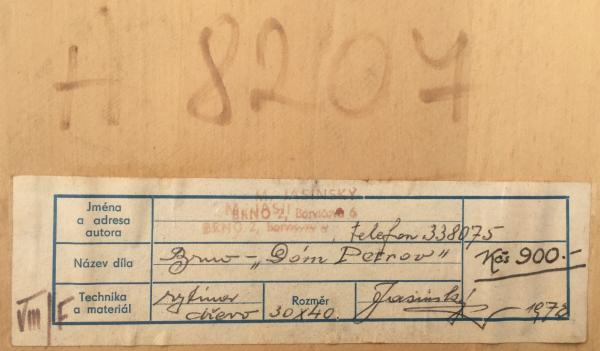 H 8207
Jména
a adresa
autora
M. JASINSKY
BRNO 2, Borvičova 6
BRNO 2,
telefon 338075
Název díla
Brno - „Dóm Petrov"
Kčs 900.-
Technika
a materiál
dřevo
Rozměr
30x40.
Jasinský
1978
VIII F